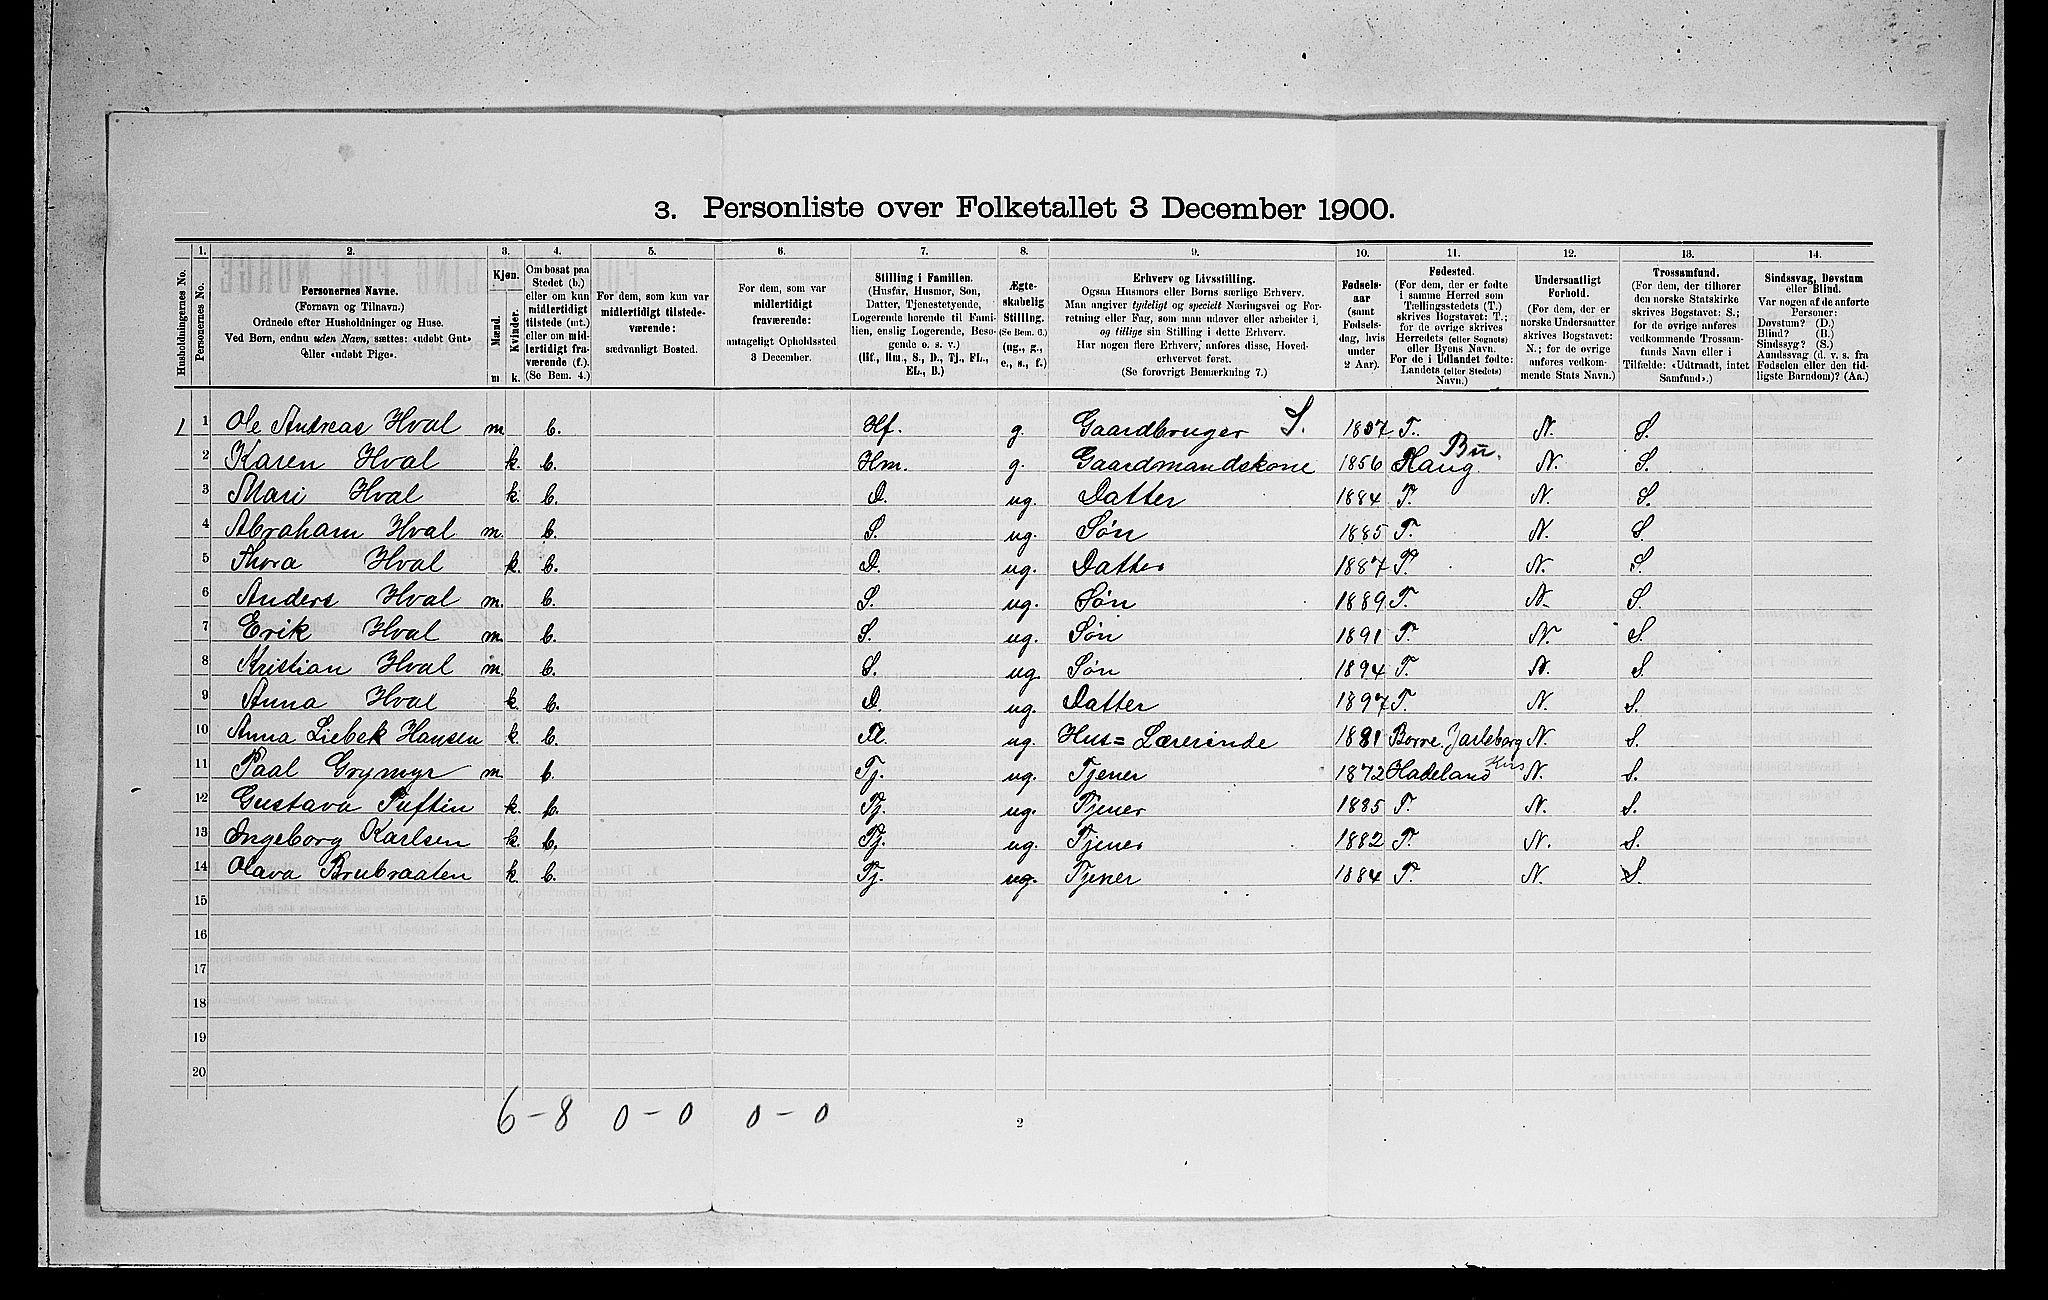 3. Personliste over Folketallet 3 December 1900.
1. 2. 3. 4. 5. 6. 7. 8. 9. 10. 11. 12. 13. 14.
Husholdningernes No.
Personernes No.
Personernes Navne.
(Fornavn og Tilnavn.)
Ordnede efter Husholdninger og Huse.
Ved Børn, endnu uden Navn, sættes: «udøbt Gut»
eller «udøbt Pige».
Kjøn.
Mænd.
Kvinder.
m k.
Om bosat paa
Stedet (b.)
eller om kun
midlertidigt
tilstede (mt.)
eller om mid-
lertidigt fra-
værende (f.).
(Se Bem. 4.)
For dem, som kun var
midlertidigt tilstede-
værende:
sædvanligt Bosted.
For dem, som var
midlertidigt
fraværende:
antageligt Opholdssted
3 December.
Stilling i Familien.
(Husfar, Husmor, Søn,
Datter, Tjenestetyende,
Logerende hørende til Fami-
lien, enslig Logerende, Besø-
gende o. s. v.)
(Hf., Hm., S., D., Tj., FL.,
EL., B.)
Ægte-
skabelig
Stilling.
(Se Bem. 6.)
(ug., g.,
e., s., f.)
Erhverv og Livsstilling.
Ogsaa Husmors eller Børns særlige Erhverv.
Man angiver tydeligt og specielt Næringsvei og For-
retning eller Fag, som man udøver eller arbeider i,
og tillige sin Stilling i dette Erhverv.
Har nogen flere Erhverv, anføres disse, Hoved-
erhvervet først.
(Se forøvrigt Bemærkning 7.)
Fødsels-
aar
(samt
Fødsels-
dag, hvis
under
2 Aar).
Fødested.
(For dem, der er fødte
i samme Herred som
Tællingsstedets (T.)
skrives Bogstavet: T.;
for de øvrige skrives
Herredets (eller Sognets)
eller Byens Navn.
For de i Udlandet fødte:
Landets (eller Stedets)
Navn.)
Undersaatligt
Forhold.
(For dem, der er
norske Undersaatter
skrives Bogstavet:
N.; for de øvrige
anføres vedkom-
mende Stats Navn.)
Trossamfund.
(For dem, der tilhører
den norske Statskirke
skrives Bogstavet: S.;
for de øvrige anføres
vedkommende Trossam-
funds Navn eller i
Tilfælde: «Udtraadt, intet
Samfund».)
Sindssvag, Døvstum
eller Blind.
Var nogen af de anførte
Personer:
Døvstum? (D.)
Blind? (B.)
Sindssyg? (S.)
Aandssvag (d. v. s. fra
Fødselen eller den tid-
ligste Barndom)? (Aa.)
1 1 Ole Andreas Hval m. b. Hf. g. Gaardbruger S. 1857 T. N. S.
2 Karen Hval k. b. Hm. g. Gaardmandskone 1856 Haug Bu. N. S.
3 Mari Hval k. b. D. ug. Datter 1884 T. N. S.
4 Abraham Hval m. b. S. ug. Søn 1885 T. N. S.
5 Thora Hval k. b. D. ug. Datter 1887 T. N. S.
6 Anders Hval m. b. S. ug. Søn 1889 T. N. S.
7 Erik Hval m. b. S. ug. Søn 1891 T. N. S.
8 Kristian Hval m. b. S. ug. Søn 1894 T. N. S.
9 Anna Hval k. b. D. ug. Datter 1897 T. N. S.
10 Anna Liebek Hansen k. b. ug. Hus= Lærerinde 1881 Borre. Jarlsberg N. S.
11 Paal Grymyr m. b. Tj. ug. Tjener 1872 Hadeland Kris N. S.
12 Gustava Tuftin k. b. Tj. ug. Tjener 1885 T. N. S.
13 Ingeborg Karlsen k. b. Tj. ug. Tjener 1882 T. N. S.
14 Olava Brubraaten k. b. Tj. ug. Tjener 1884 T. N. S.
15
16
17
18
19
20
6 – 8 0 – 0 0 – 0
2